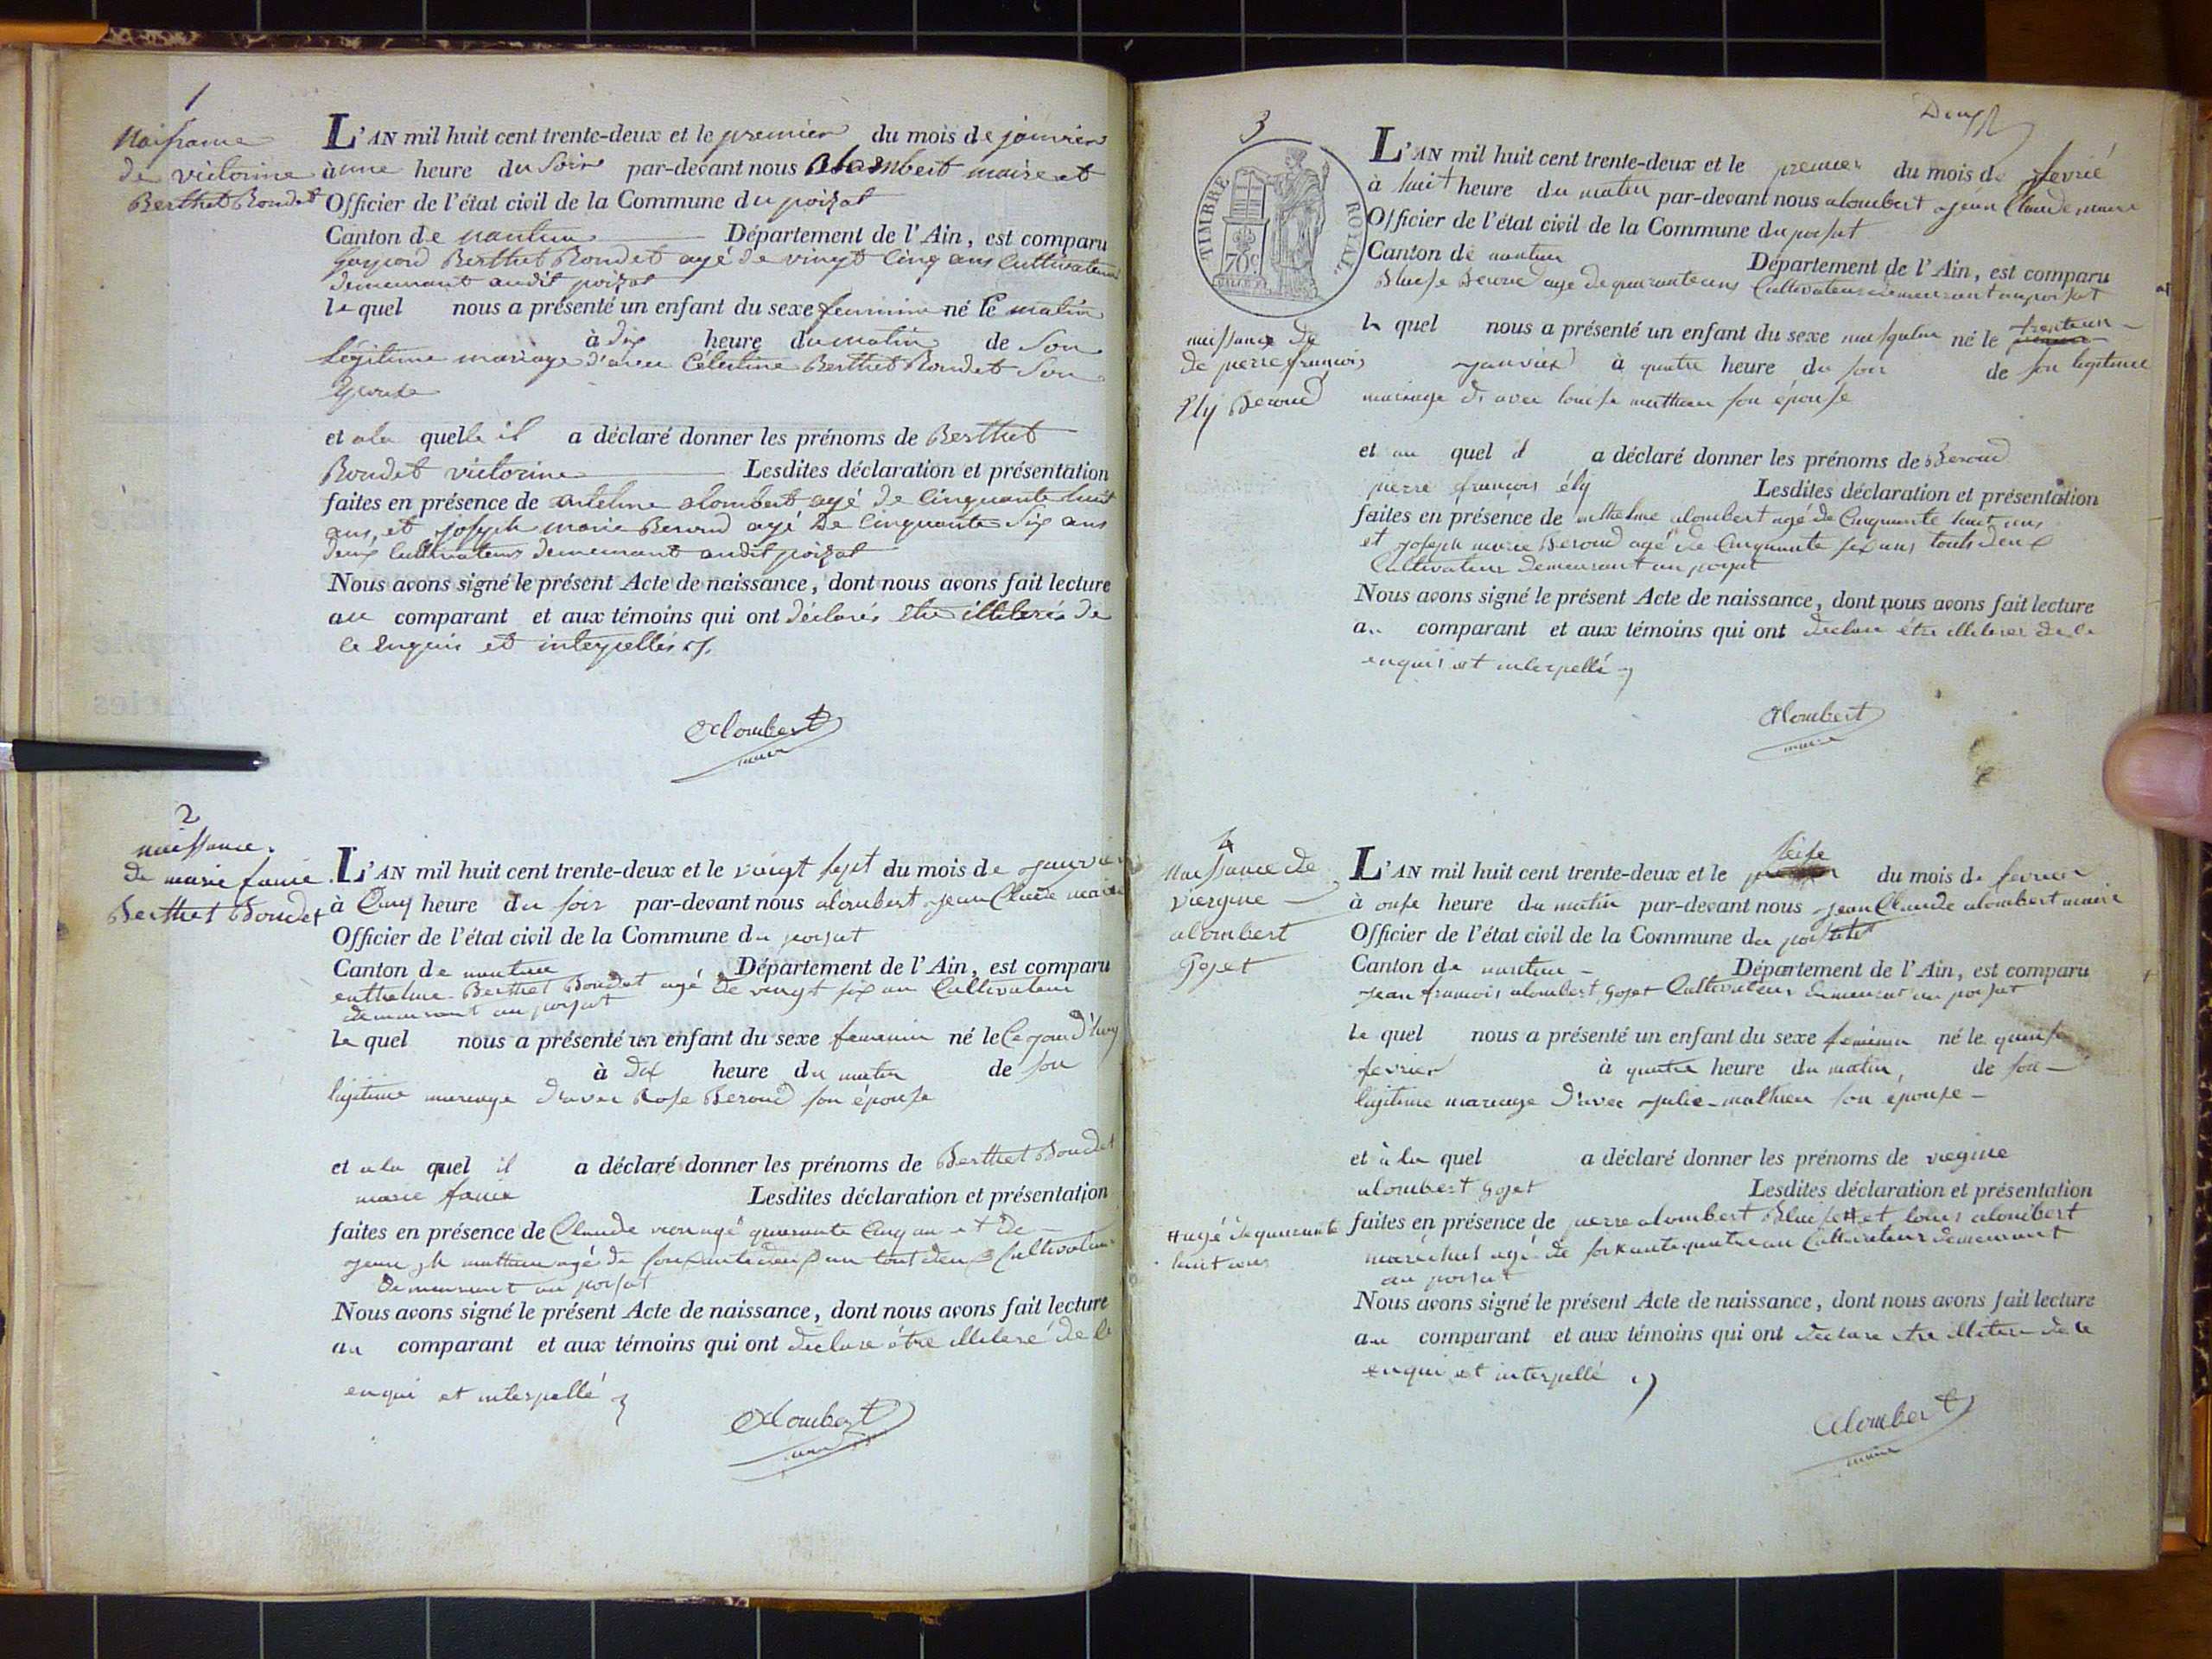 1
Naissance
de victorine
Berthet Bondet
L'AN mil huit cent trente-deux et le premier du mois de janvier
à une heure du Soir par-devant nous Alombert maire et
Officier de l'état civil de la Commune du poizat
Canton de nantua Département de l'Ain, est comparu
gaspard Berthet Bondet agé de vingt Cinq ans Cultivateur
demeurant audit poizat
le quel nous a présenté un enfant du sexe feminin né le matin
à dix heure du matin de Son
légitime mariage d'avec Célestine Berthet Bondet Son
Epouse
et a la quelle il a déclaré donner les prénoms de Berthet
Bondet victorine Lesdites déclaration et présentation
faites en présence de antelme alombert agé de Cinquante huit
ans, et joseph marie Beroud agé De Cinquante Six ans
deux Cultivateurs demeurant audit poizat
Nous avons signé le présent Acte de naissance, dont nous avons fait lecture
au comparant et aux témoins qui ont déclarés être illiterés de
ce Enquis et interpellés
Alombert
maire
2
naissance
de marie fanie
Berthet Bondet
L'AN mil huit cent trente-deux et le vingt sept du mois de janvier
à Cinq heure du soir par-devant nous alombert jean Claude maire
Officier de l'état civil de la Commune du poisat
Canton de nantua Département de l'Ain, est comparu
anthelme Berthet Bondet agé de vingt six an Cultivateur
demeurant au poisat
le quel nous a présenté un enfant du sexe femenin né le Ce jourd'huy
à dix heure du matin de son
legitime mariage d'avec Rose Beroud son épouse
et a la quel il a déclaré donner les prénoms de Berthet Bondet
marie fanie Lesdites déclaration et présentation
faites en présence de Claude agé quarante Cinq an et De
mathieu agé de soixante deux an tout deux Cultivateur
Demeurant au poisat
Nous avons signé le présent Acte de naissance, dont nous avons fait lecture
au comparant et aux témoins qui ont declare être illiteré de le
enqui et interpellé
Alombert
maire
Deux
3
TIMBRE ROYAL
70 c
naissance de
de pierre françois
Ely Beroud
L'AN mil huit cent trente-deux et le premier du mois de fevrié
à huit heure du matin par-devant nous alombert jean Claude maire
Officier de l'état civil de la Commune du poisat
Canton de nantua Département de l'Ain, est comparu
Blaise Beroud agé de quarante ans Cultivateur demeurant au poisat
le quel nous a présenté un enfant du sexe masqulin né le trente un
janvier à quatre heure du soir de son legitime
mariage d'avec louise mathieu son épouse
et au quel il a déclaré donner les prénoms de Beroud
pierre françois ély Lesdites déclaration et présentation
faites en présence de anthelme alombert agé de Cinquante huit ans
et joseph marie Beroud agé de Cinquante six ans touts deux
Cultivateur demeurant au poisat
Nous avons signé le présent Acte de naissance, dont nous avons fait lecture
au comparant et aux témoins qui ont declare être illiterer de le
enquis et interpellé
Alombert
maire
4
Naissance de
viergine
alombert
Gojet
L'AN mil huit cent trente-deux et le seise du mois de fevrier
à onse heure du matin par-devant nous jean Claude alombert maire
Officier de l'état civil de la Commune du poisat
Canton de nantua Département de l'Ain, est comparu
jean francois alombert gojet Cultivateur demeurant au poisat
le quel nous a présenté un enfant du sexe feminin né le quinse
fevrier à quatre heure du matin, de son
legitime mariage d'avec julie mathieu son épouse
et à la quel a déclaré donner les prénoms de viergine
alombert gojet Lesdites déclaration et présentation
faites en présence de pierre alombert Blaise # et louis alombert
# agé de quarante
huit ans
marechal agé de soixante quatre an Cultivateur demeurant
au poisat
Nous avons signé le présent Acte de naissance, dont nous avons fait lecture
au comparant et aux témoins qui ont declare être illitere de le
enqui et interpellé
Alombert
maire